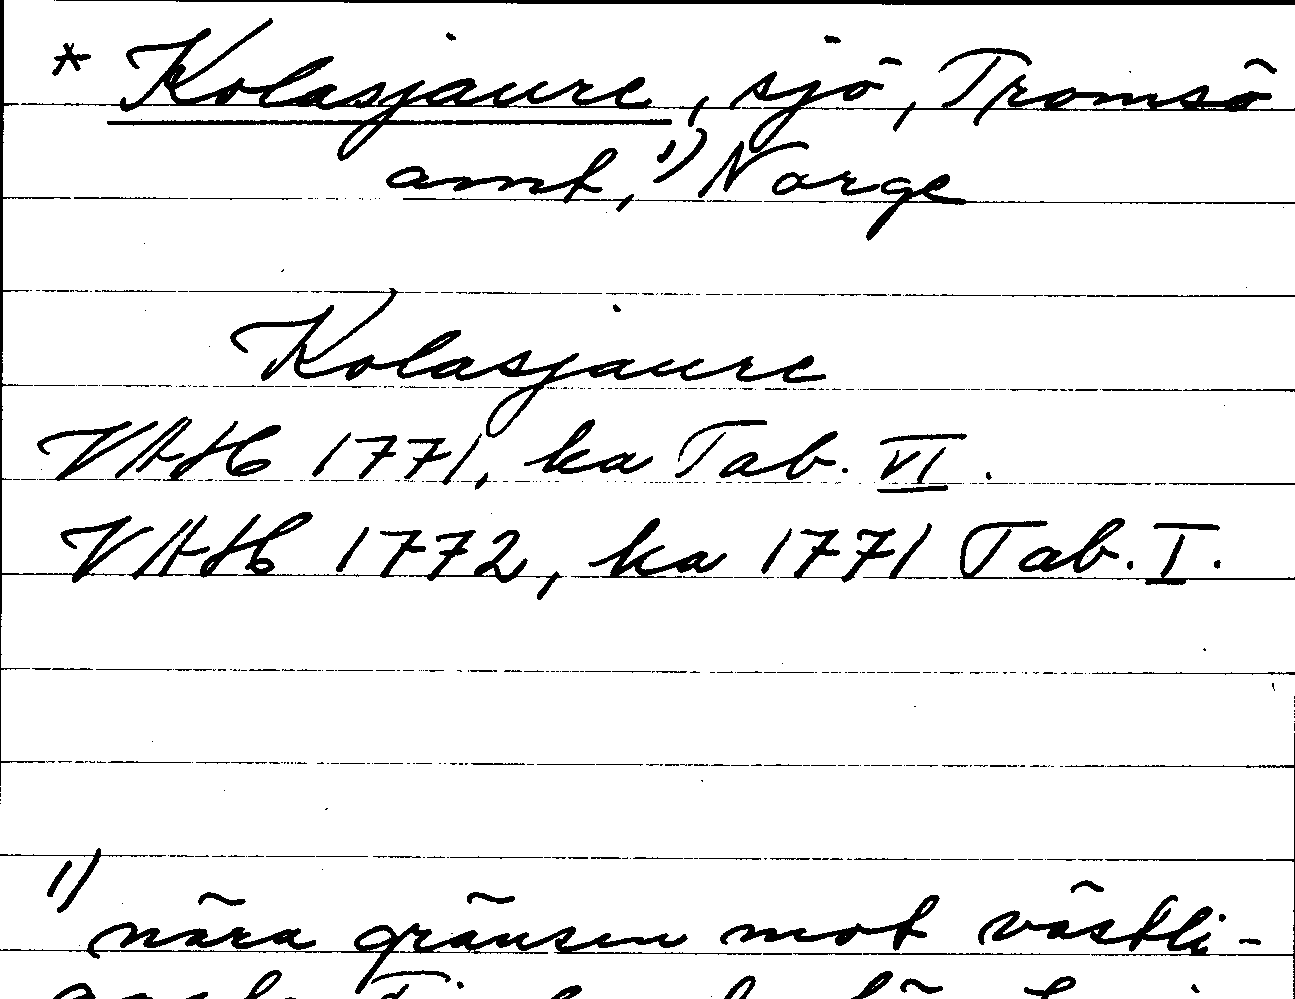 * Kolasjaure, sjö, Tromsö
amt, 1) Norge
Kolasjaure
VAH 1771, ka Tab. VI.
VAH 1772, ka 1771 Tab. I.
1) nära gränsen mot västli-